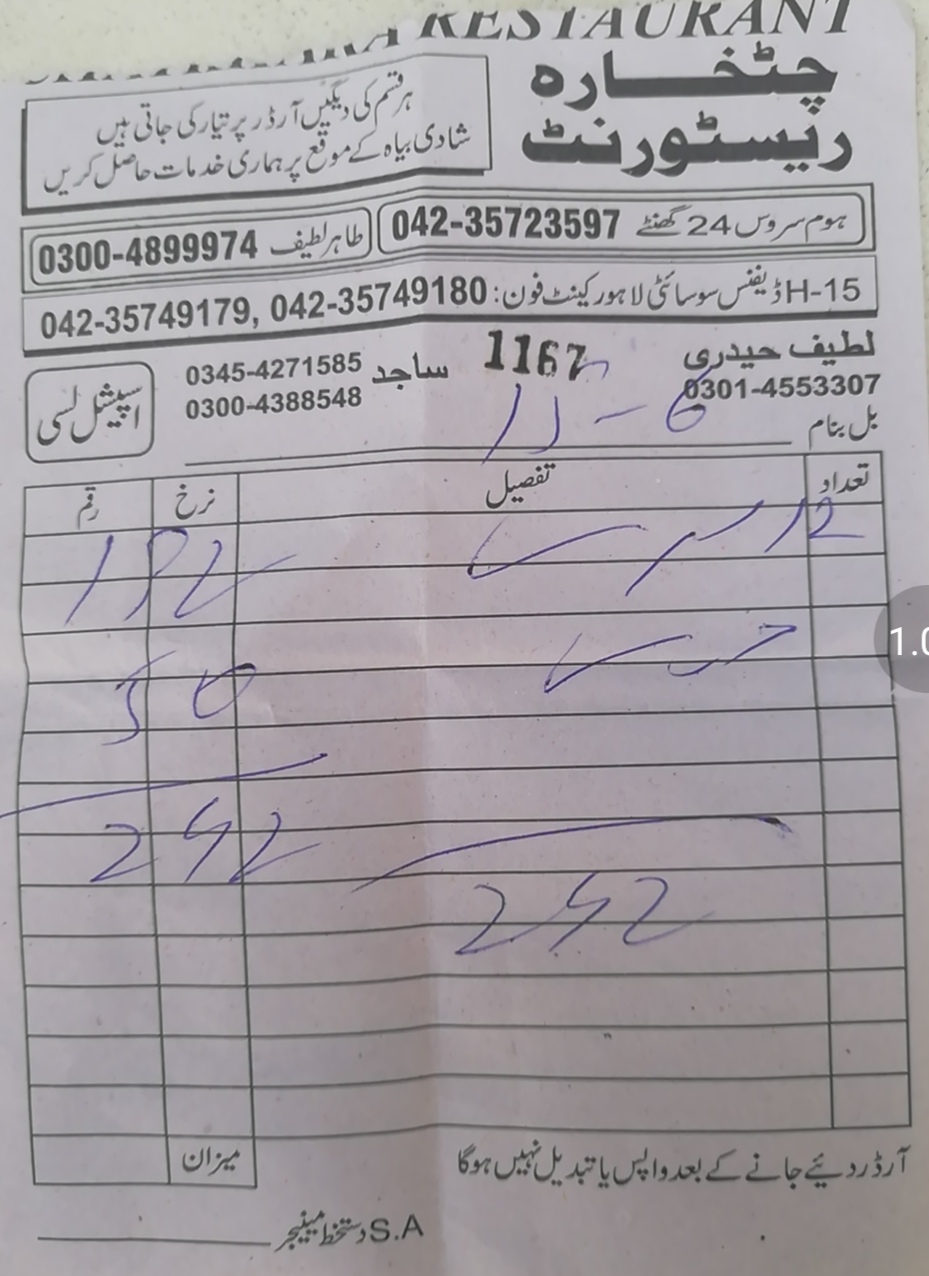 RESTAURANT
چٹخارہ
ریسٹورنٹ
ہر قسم کی دیگیں آرڈر پر تیار کی جاتی ہیں
شادی بیاہ کے موقع پر ہماری خدمات حاصل کریں
ہوم سروس 24 گھنٹے 042-35723597
طاہر لطیف 0300-4899974
15-H ڈیفنس سوسائٹی لاہور کینٹ فون: 042-35749180 ,042-35749179
لطیف حیدری
0301-4553307
1167
ساجد 0345-4271585
0300-4388548
اسپیشل لسی
بل بنام
11-6
تعداد تفصیل نرخ رقم
12 192
50
242
242
میزان
آرڈر دئیے جانے کے بعد واپس یا تبدیل نہیں ہوگا
دستخط مینیجر
S.A
1.0